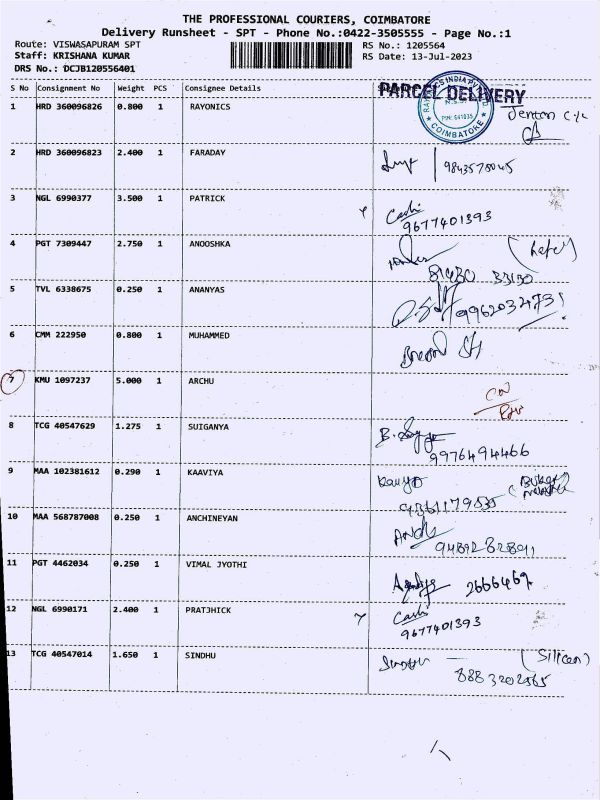 THE PROFESSIONAL COURIERS, COIMBATORE
Delivery Runsheet - SPT - Phone No.:0422-3505555 - Page No.:1
Route: VISWASAPURAM SPT RS No.: 1205564
Staff: KRISHANA KUMAR RS Date: 13-Jul-2023
DRS No.: DCJB120556401
S No Consignment No Weight PCS Consignee Details
PARCEL DELIVERY
COIMBATORE
1 HRD 360096826 0.800 1 RAYONICS
2 HRD 360096823 2.400 1 FARADAY
3 NGL 6990377 3.500 1 PATRICK Cash
9677401393
4 PGT 7309447 2.750 1 ANOOSHKA
5 TVL 6338675 0.250 1 ANANYAS
6 CMM 222950 0.800 1 MUHAMMED
7 KMU 1097237 5.000 1 ARCHU
8 TCG 40547629 1.275 1 SUIGANYA
9976494466
9 MAA 102381612 0.290 1 KAAVIYA
10 MAA 568787008 0.250 1 ANCHINEYAN
11 PGT 4462034 0.250 1 VIMAL JYOTHI
2666469
12 NGL 6990171 2.400 1 PRATJHICK Cash
9677401393
13 TCG 40547014 1.650 1 SINDHU (Silicon)